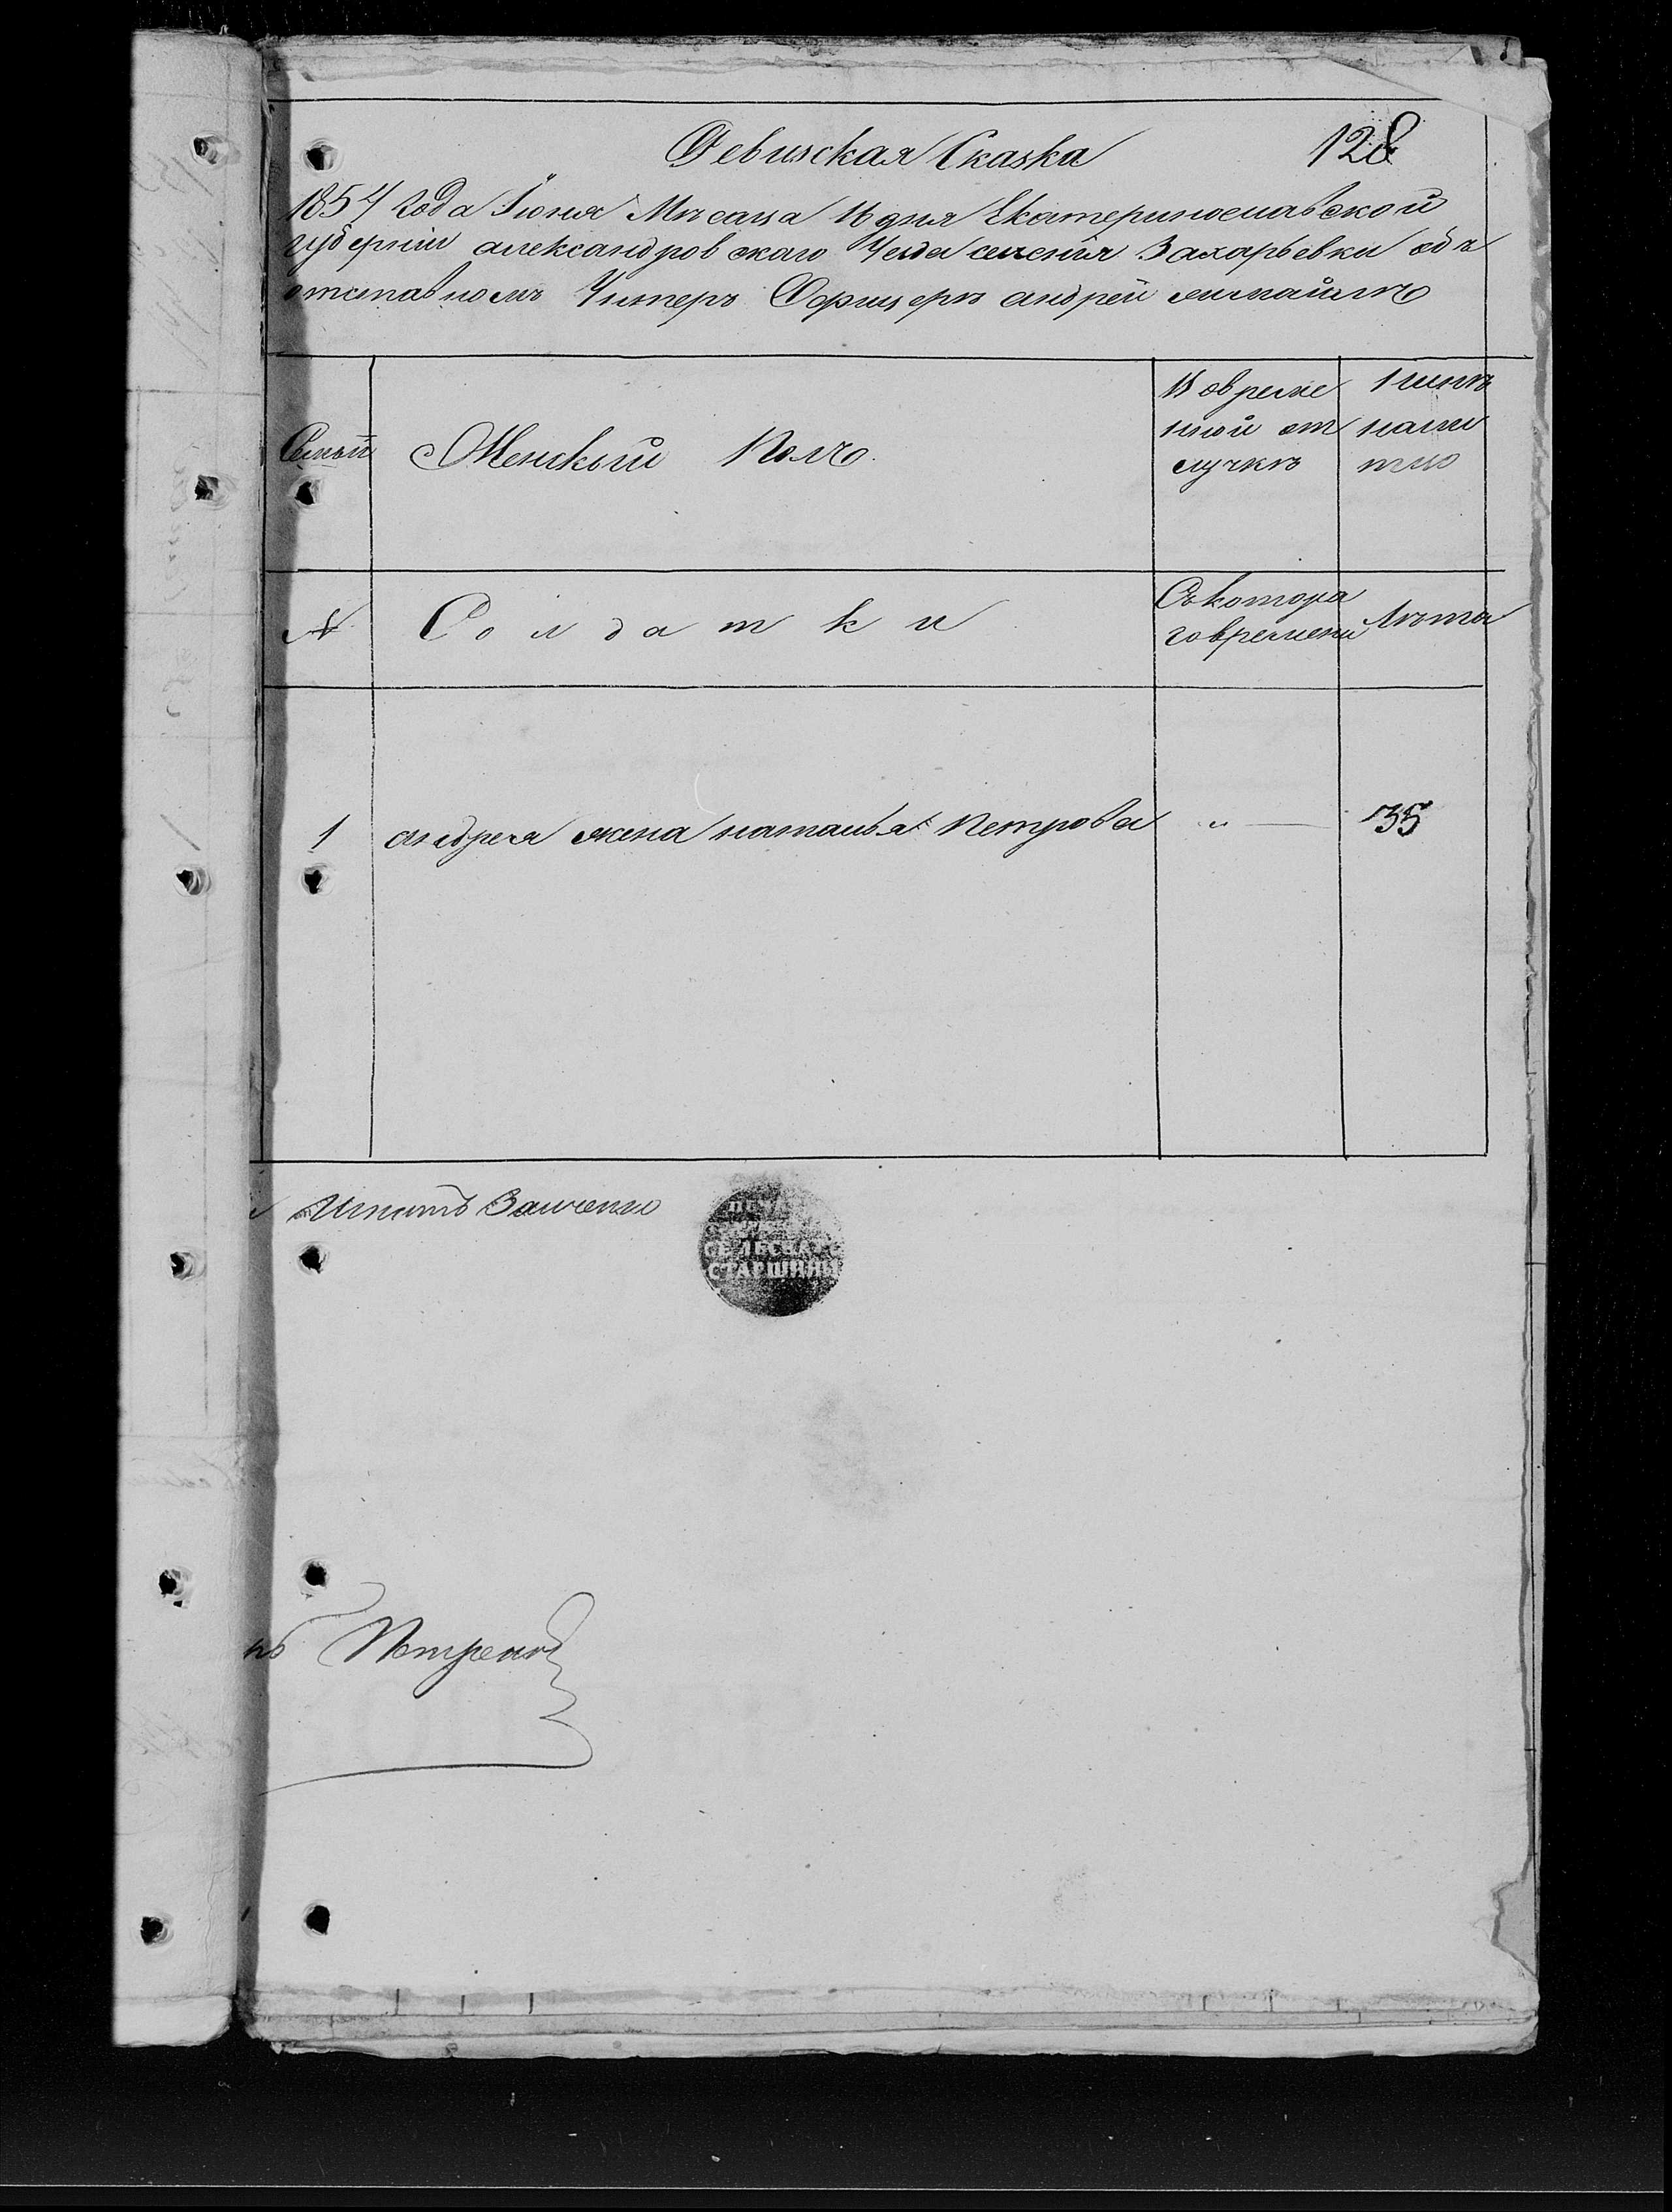 Ревизская Сказка 128
1854 Года Іюня Мѣсаца 16 дня Екатеринославской
губерніи александровскаго Уезда селенія Захарьевки объ
отставномъ Унтеръ Офицерѣ андрей
Семьи Женский Полъ
Вовреме
нной от
лучкѣ
Ныне
нали
цо
№ Солдатки
Съкотора
говремени
Лѣта
1 андрея жена наталья Петрова " — 35
ПЕЧАТЬ
СЕЛЬСКАГО
СТАРШИНЫ
Петренко